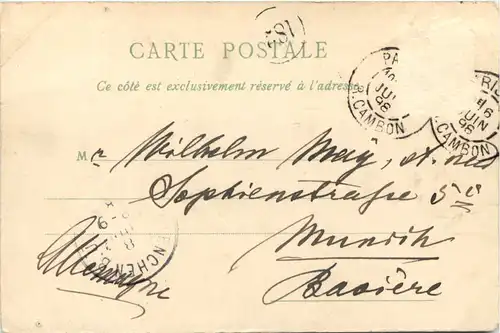 182
CARTE POSTALE
Ce côté est exclusivement réservé à l'adresse
PARIS
JUIN
96
R. CAMBON
16
JUIN
96
R. CAMBON
Mr Wilhelm May, st. med
Sophienstrasse 5
Munich
Bavière
Allemagne
MUENCHEN